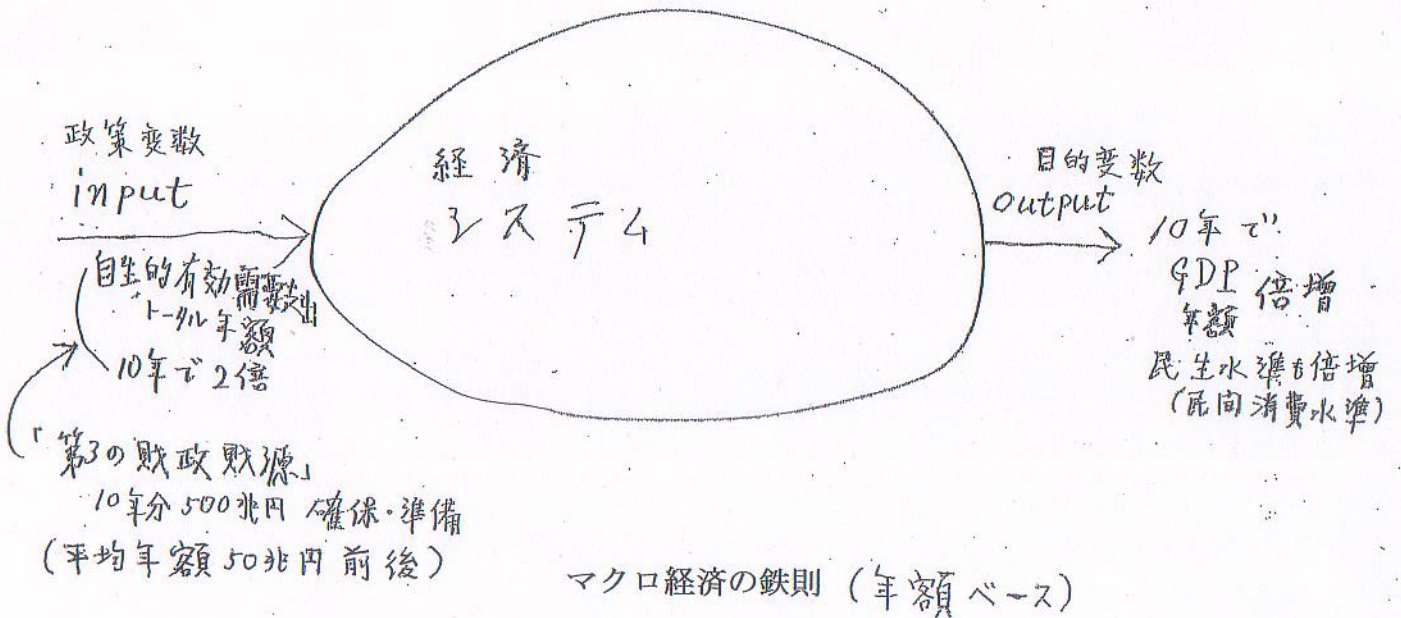 政策変数
input
自生的有効需要支出
トータル年額
10年で2倍
「第3の財政財源」
10年分500兆円 確保・準備
(平均年額50兆円前後)
経済
システム
目的変数
output
10年で
GDP
年額
倍増
民生水準も倍増
(民間消費水準)
マクロ経済の鉄則 (年額ベース)